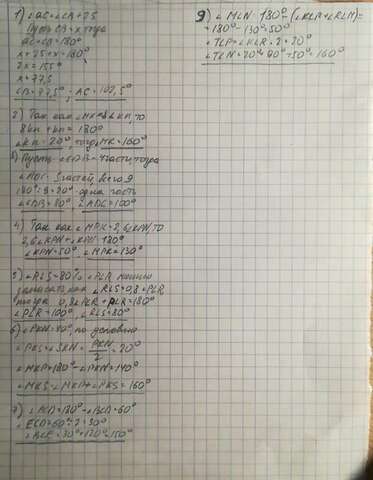 1) ∠AC=∠CB+25
Пусть CB=x тогда
AC+CB=180°
x+25+x=180°
2x=155°
x=77,5
∠B=77,5°; AC=102,5°
2) Так как ∠MKR=8∠KN, то
8kn+kn=180°
∠KN=20°, тогда ∠MK=160°
3) Пусть ∠CDB=4части, тогда
∠ADC=5частей, всего 9
180°:9=20° одна часть
∠CDB=80° ∠ADC=100°
4) Так как ∠MPK=2,6∠KPN, то
2,6∠KPN+∠KPN=180°
∠KPN=50°, ∠MPK=130°
5) ∠RLS=80% ∠PLR можно
записать как ∠RLS=0,8∠PLR
тогда 0,8∠PLR+∠PLR=180°
∠PLR=100°, ∠RLS=80°
6) ∠PKN=40°, по условию
∠PKS=∠SKN=PKN/2=20°
∠MKP=180°-∠PKN=140°
∠MKS=∠MKP+∠PKS=160°
7) ∠BCD=180°-∠BCA=60°
∠ECD=60°:2=30°
∠ACE=30°+120°=150°
9) ∠MLN=180°-(∠KLM+∠RLM)=
=180°-130°=50°
∠TLP=∠KLR:2=20°
∠TLN=20°+90°+50°=160°